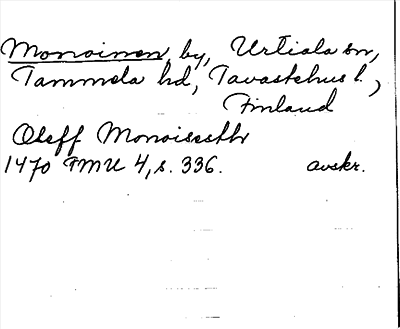 Monoinen by, Urtiala sn,
Tammela hd, Tavastehus l.,
Finland
Oleff Monoisesthr
1470 FMU 4, s. 336. avskr.